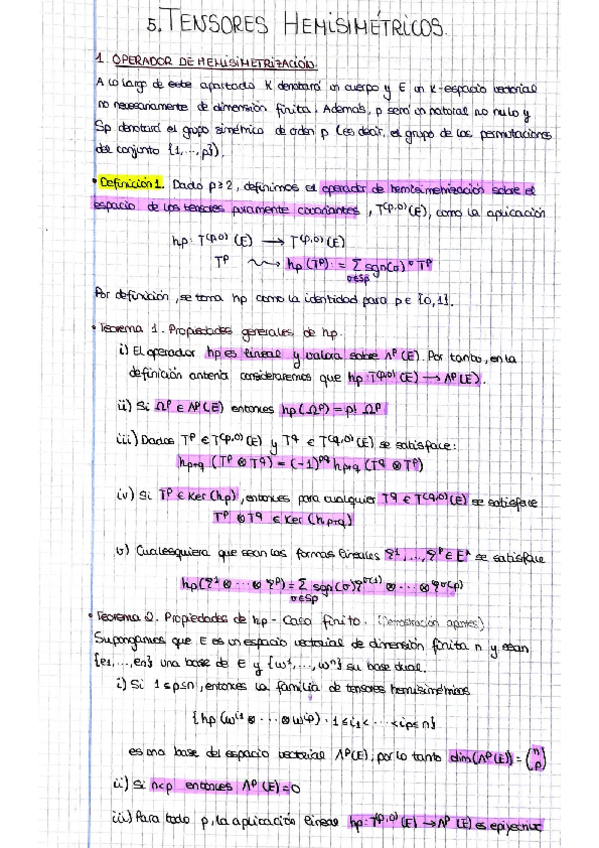 5. TENSORES HEMISIMÉTRICOS.
1. OPERADOR DE HEMISIMETRIZACIÓN.
A lo largo de este apartado K denotará un cuerpo y E un K-espacio vectorial
no necesariamente de dimensión finita. Además, p será un natural no nulo y
Sp denotará el grupo simétrico de orden p (es decir, el grupo de las permutaciones
del conjunto {1,...,p}).
• Definición 1. Dado p≥2, definimos el operador de hemisimetrización sobre el
espacio de los tensores puramente covariantes, T^(p,0)(E), como la aplicación
hp: T^(p,0)(E) → T^(p,0)(E)
T^p ⇝ hp(T^p) := Σ_{σ∈Sp} sgn(σ) σ T^p
Por definición, se toma hp como la identidad para p ∈ {0,1}.
• Teorema 1. Propiedades generales de hp.
i) El operador hp es lineal y valora sobre Λ^p(E). Por tanto, en la
definición anterior consideraremos que hp: T^(p,0)(E) → Λ^p(E).
ii) Si Ω^p ∈ Λ^p(E) entonces hp(Ω^p) = p! Ω^p
iii) Dados T^p ∈ T^(p,0)(E) y T^q ∈ T^(q,0)(E) se satisface:
h_{p+q}(T^p ⊗ T^q) = (-1)^{pq} h_{p+q}(T^q ⊗ T^p)
iv) Si T^p ∈ Ker(hp), entonces para cualquier T^q ∈ T^(q,0)(E) se satisface
T^p ⊗ T^q ∈ Ker(h_{p+q})
v) Cualesquiera que sean las formas lineales ξ^1,...,ξ^p ∈ E* se satisface
hp(ξ^1 ⊗ ... ⊗ ξ^p) = Σ_{σ∈Sp} sgn(σ) ξ^{σ(1)} ⊗ ... ⊗ ξ^{σ(p)}
• Teorema 2. Propiedades de hp - Caso finito. (Demostración apuntes)
Supongamos que E es un espacio vectorial de dimensión finita n y sean
{e1,...,en} una base de E y {w^1,...,w^n} su base dual.
i) Si 1≤p≤n, entonces la familia de tensores hemisimétricos
{hp(w^{i1} ⊗ ... ⊗ w^{ip}) : 1≤i1<...<ip≤n}
es una base del espacio vectorial Λ^p(E), por lo tanto dim(Λ^p(E)) = (n p)
ii) Si n<p entonces Λ^p(E)=0
iii) Para todo p, la aplicación lineal hp: T^(p,0)(E) → Λ^p(E) es epiyectiva